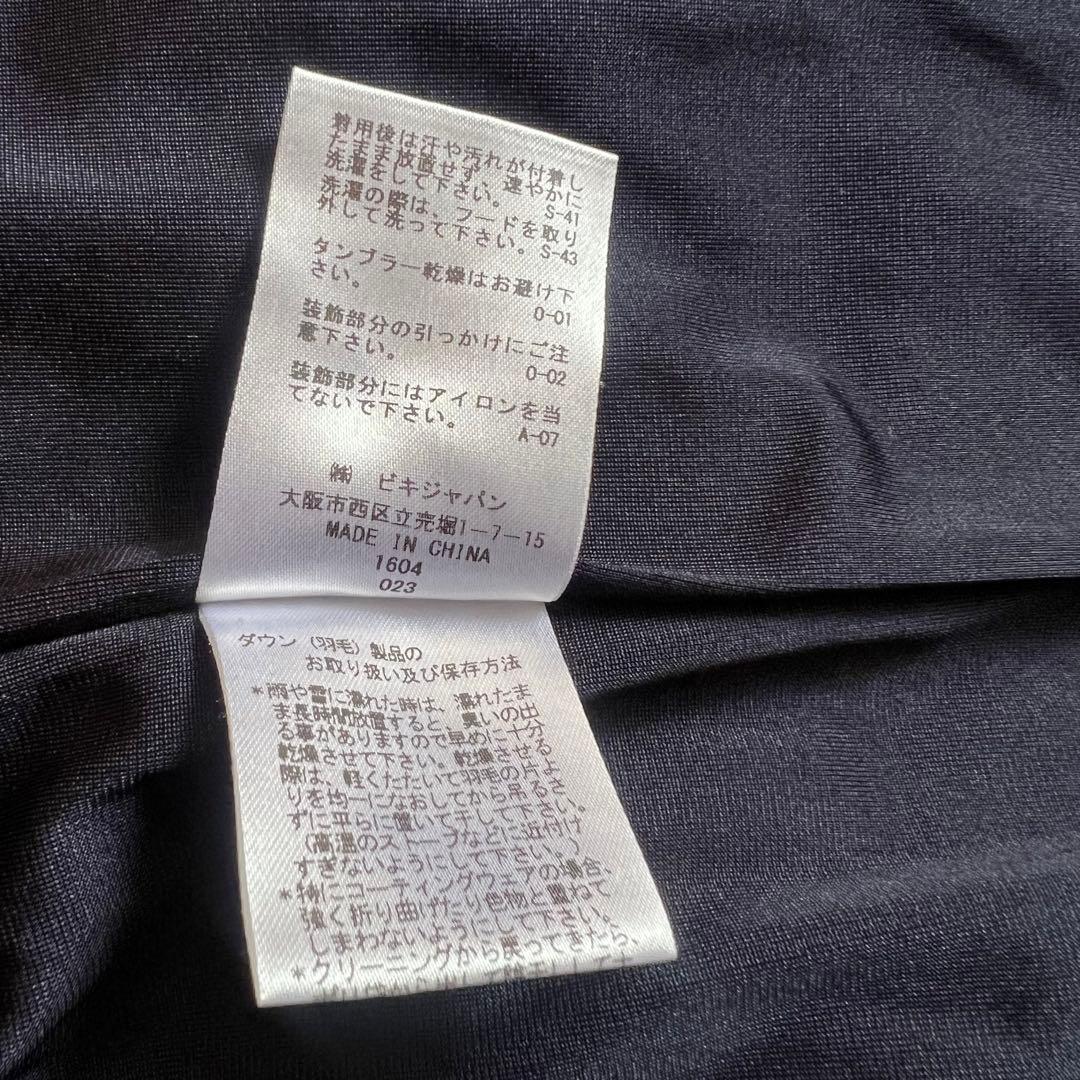 着用後は汗や汚れが付着し
たまま放置せず、速やかに
洗濯をして下さい。 S-41
洗濯の際は、フードを取り
外して洗って下さい。S-43
タンブラー乾燥はお避け下
さい。 0-01
装飾部分の引っかけにご注
意下さい。 0-02
装飾部分にはアイロンを当
てないで下さい。 A-07
㈱ ビキジャパン
大阪市西区立売堀1-7-15
MADE IN CHINA
1604
023
ダウン(羽毛)製品の
お取り扱い及び保存方法
*雨や雪に濡れた時は、濡れたま
ま長時間放置すると、臭いの出
る事がありますので早めに十分
乾燥させて下さい。乾燥させる
際は、軽くたたいて羽毛の片よ
りを均一になおしてから吊るさ
ずに平らに置いて干して下さい。
(高温のストーブなどに近付け
すぎないようにして下さい。)
*特にコーティングウェアの場合、
強く折り曲げたり色物と重ねて
しまわないようにして下さい。
*クリーニングから戻ってきたら、